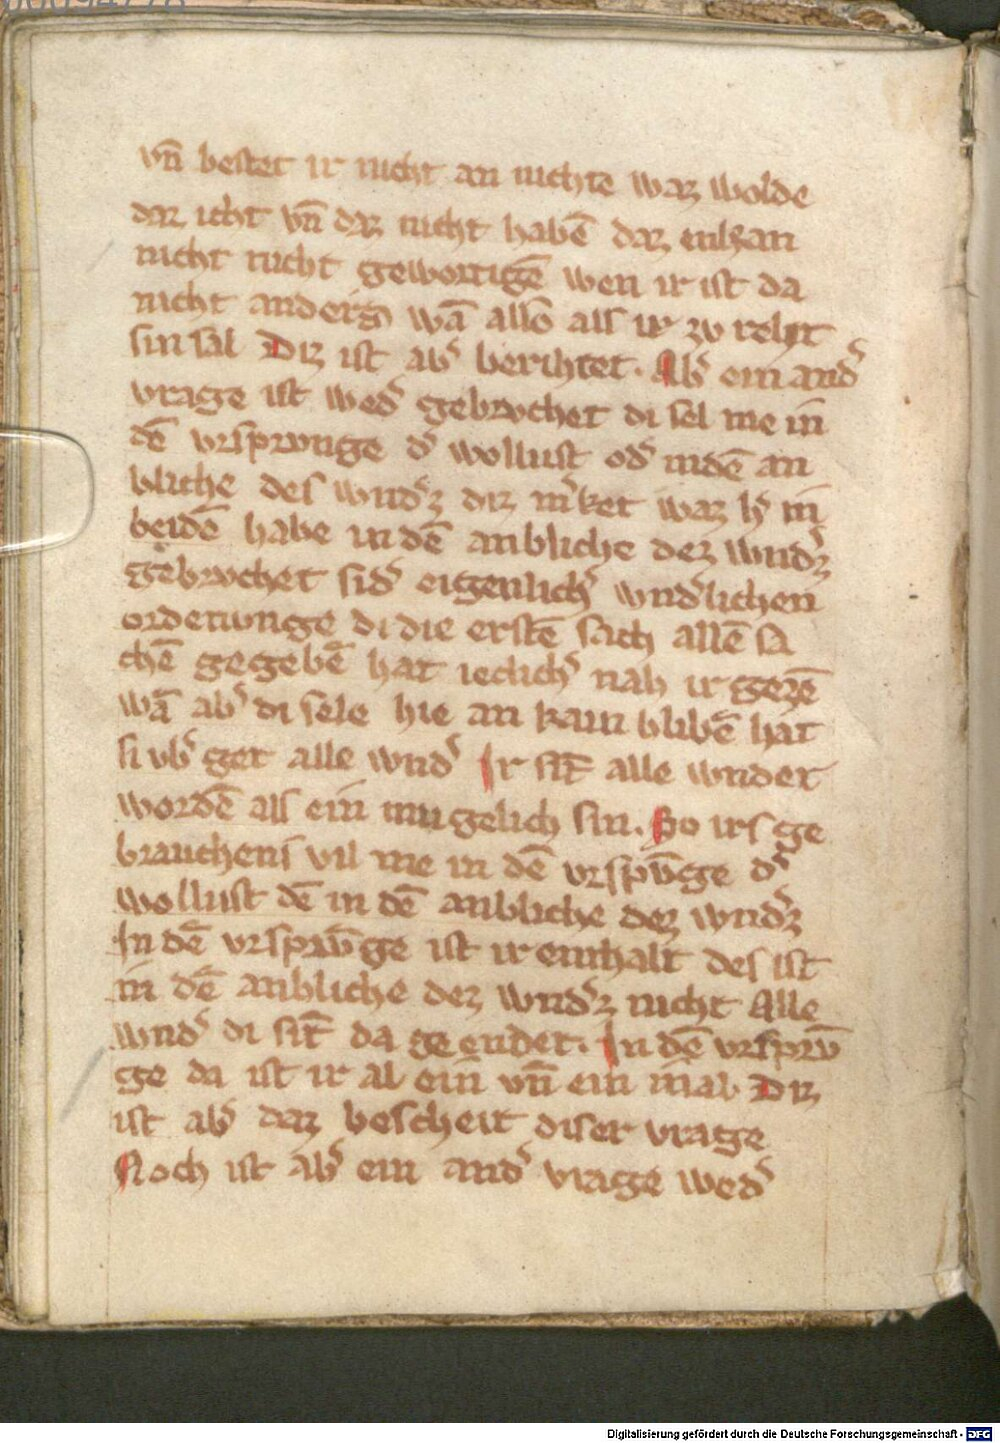 vn̄ bestet ir nicht an nichte waz wolde
daz icht vn̄ daz nicht habē daz enkan
nicht nicht gewortigē wen ir ist da
nicht anders wā allō als ir zv reht
sin sal Diz ist ab͛ berihtet. Ab͛ ein and͛
vrage ist wed͛ gebrvchet di sel me in
dē vrsprvnge d͛ wollust od͛ indē an
bliche des wnd͛z diz m͛ket waz h͛ in
beidē habe in dē anbliche dez wnd͛z
gebrvchet sid͛ eigenlich͛ wnd͛lichen
ordenvnge di die erstē sach allē sa
chē gegebē hat ieclich͛ nah ir gezē
wā ab͛ di sele hie an kain blibē hat
si vb͛ get alle wnd͛ Ir sīt alle wnder
wordē als ein mugelich sin. So irs ge
brauchens vil me in dē vrspv̄ge d͛
wollust dē in dē anbliche dez wnd͛z
In dē vrsprv̄ge ist ir enthalt des ist
in dē anbliche dez wnd͛z nicht Alle
wnd͛ di sīt da ge endet. In dē vrsprv̄
ge da ist ir al ein vn̄ ein mal Diz
ist ab͛ daz bescheit diser vrage
Noch ist ab͛ ein and͛ vrage wed͛
Digitalisierung gefördert durch die Deutsche Forschungsgemeinschaft - DFG